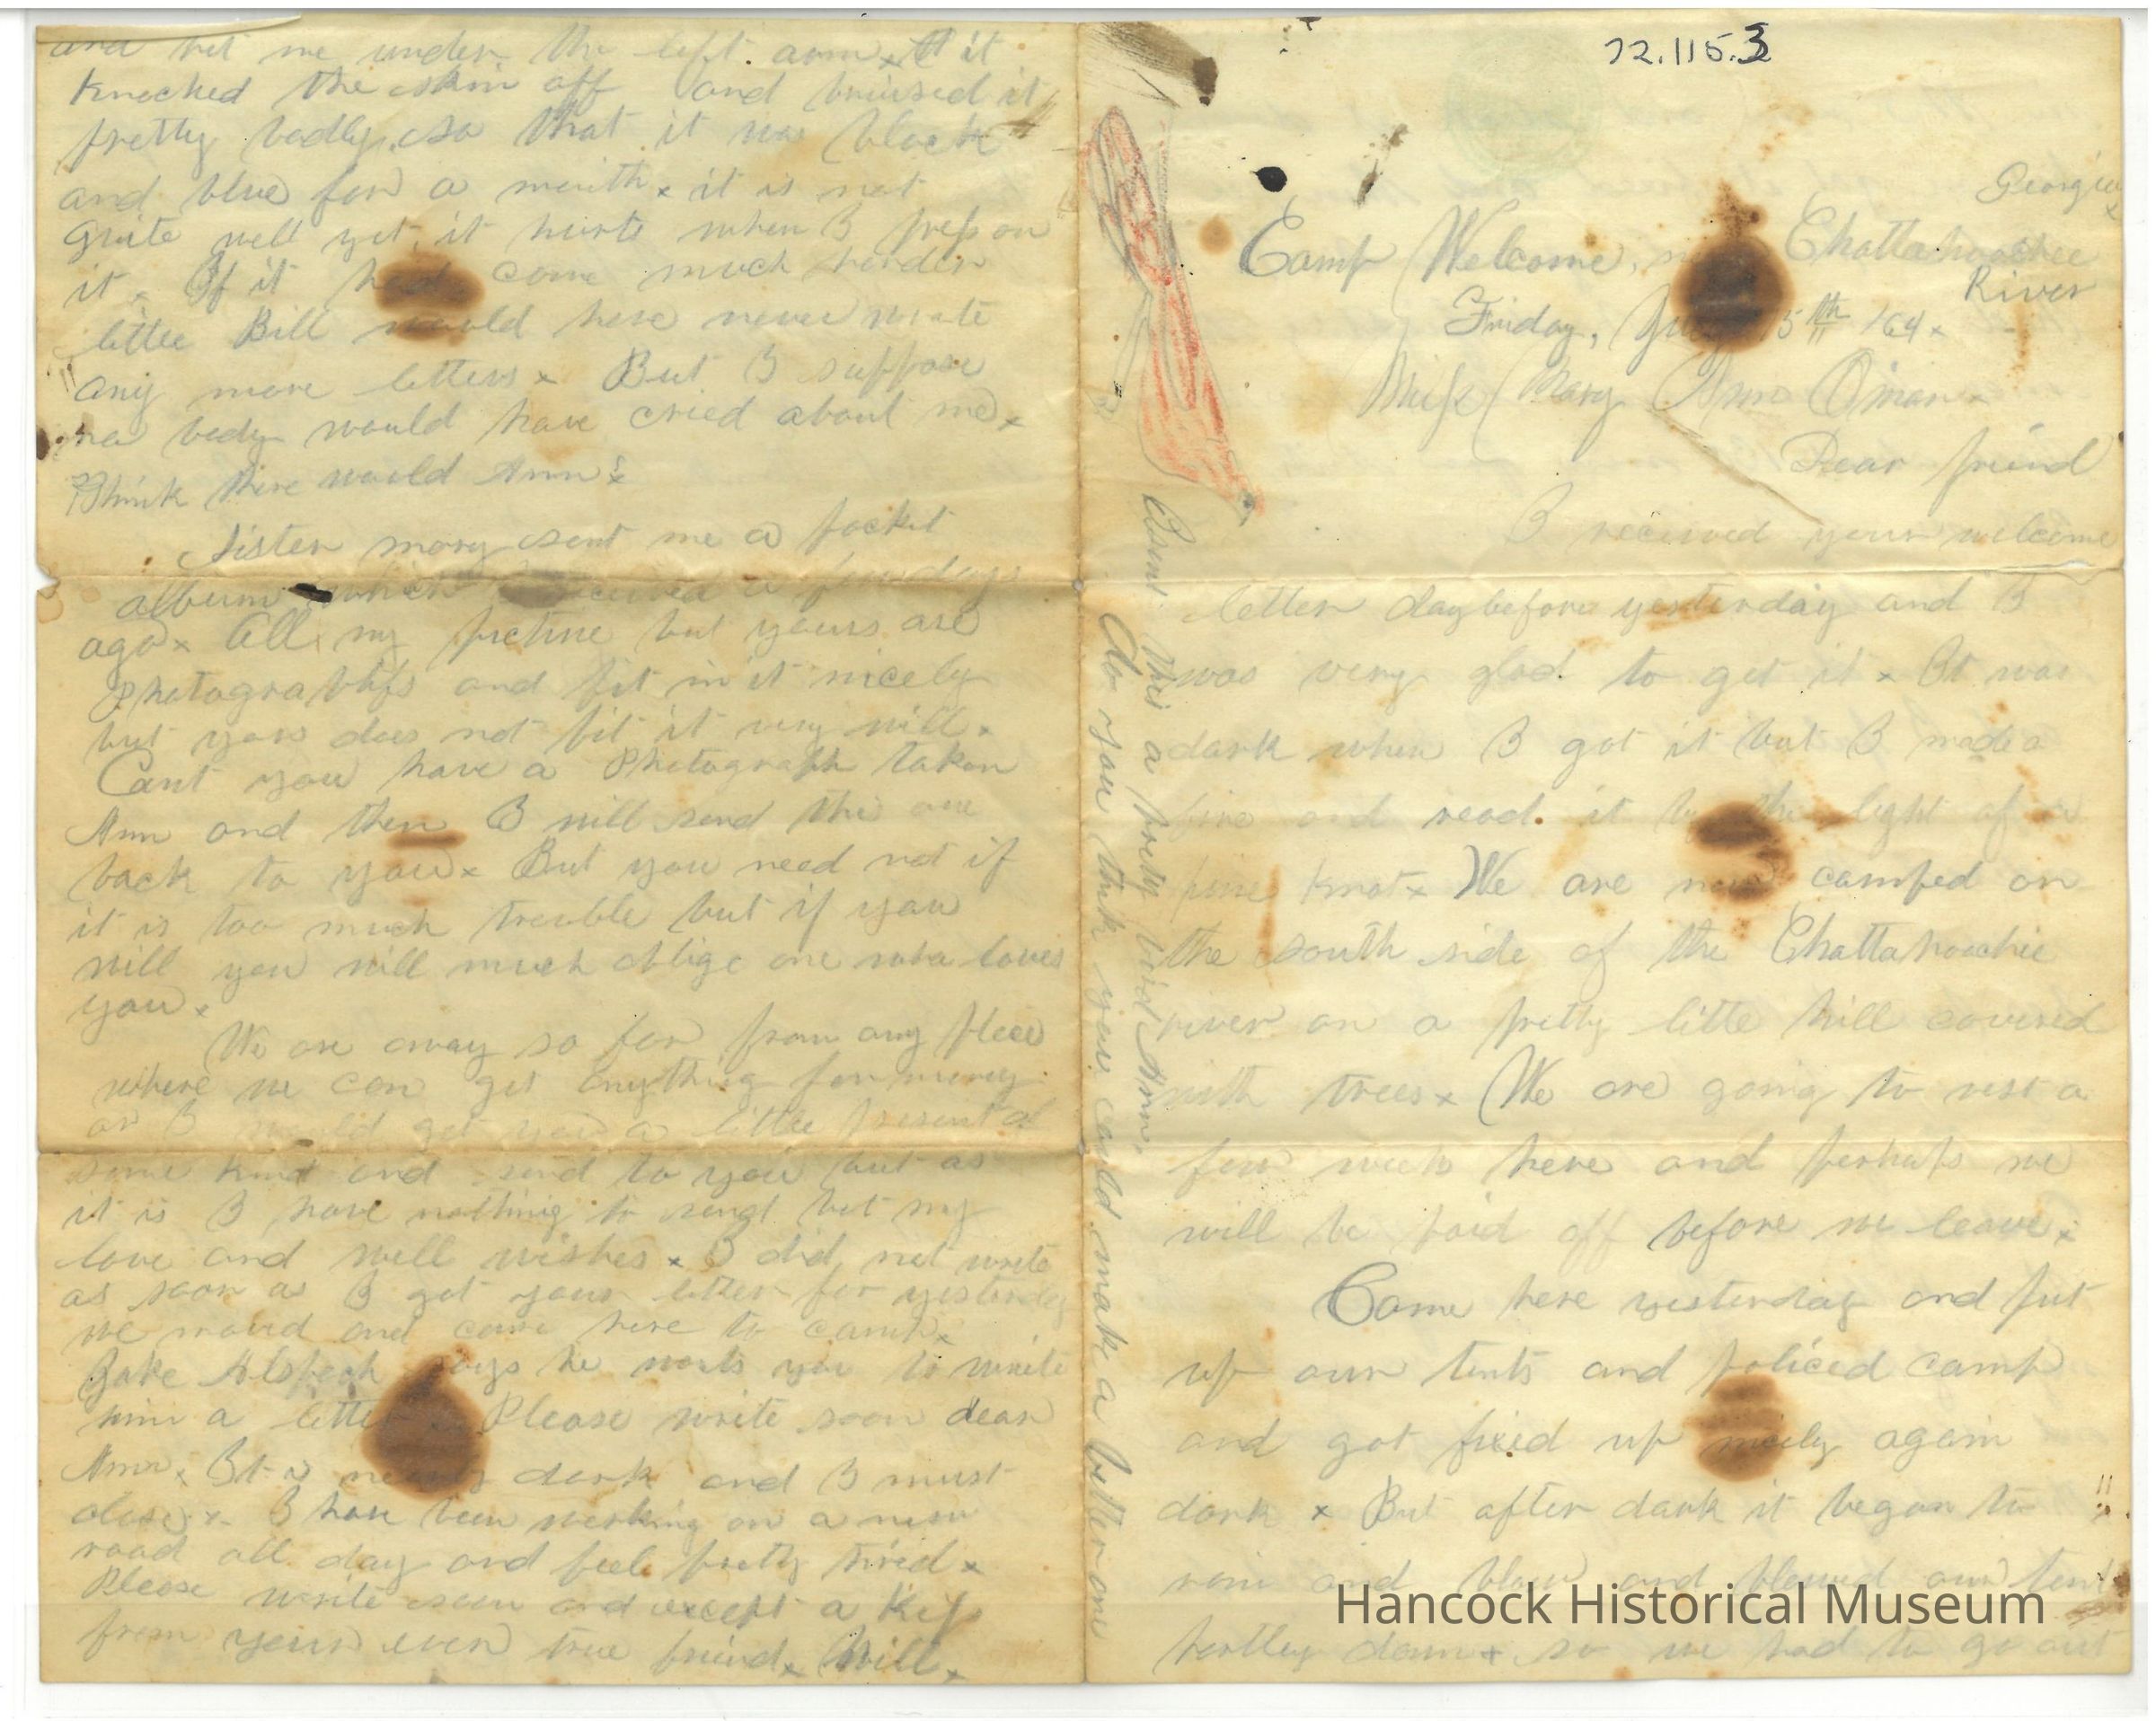 72.115.3
Georgia
Camp Welcome, Chattahoochee
River
Friday, July 5th /64 x
Miss Mary Ann Oman
Dear friend
I received your welcome
letter day before yesterday and I
was very glad to get it x It was
dark when I got it but I made a
fire and read it by the light of a
pine knot x We are now camped on
the south side of the Chattahoochie
river on a pretty little hill covered
with trees x We are going to rest a
few weeks here and perhaps we
will be paid off before we leave x
Came here yesterday and put
up our tents and policed camp
and got fixed up nicely again
dark x But after dark it began to
rain and blow and blowed our tent
partley down x so we had to go out
Isent this a prety bird Ann,
Do you think you could make a better one
and hit me under the left arm x it
knocked the skin off and bruised it
pretty badly, so that it was black
and blue for a month x it is not
quite well yet, it hurts when I press on
it x If it had come much harder
little Bill would have never wrote
any more letters x But I suppose
no body would have cried about me x
Think there would Ann?
Sister mary sent me a pocket
album which received a few days
ago x All my picture but yours are
Photographs and fit in it nicely
but yours does not fit it very well x
Cant you have a Photograph taken
Ann and then I will send this one
back to you x But you need not if
it is too much trouble but if you
will you will much oblige one who loves
you x
We are away so far from any place
where we can get anything for money
or I would get you a little present of
some kind and send to you but as
it is I have nothing to send but my
love and well wishes x I did not write
as soon as I got your letter for yesterday
we moved and came here to camp x
Jake Alspach says he wants you to write
him a letter x Please write soon dear
Ann x It is nearly dark and I must
close x I have been working on a new
road all day and feel pretty tired x
Please write soon and except a Kiss
from your ever true friend x Will x
Hancock Historical Museum